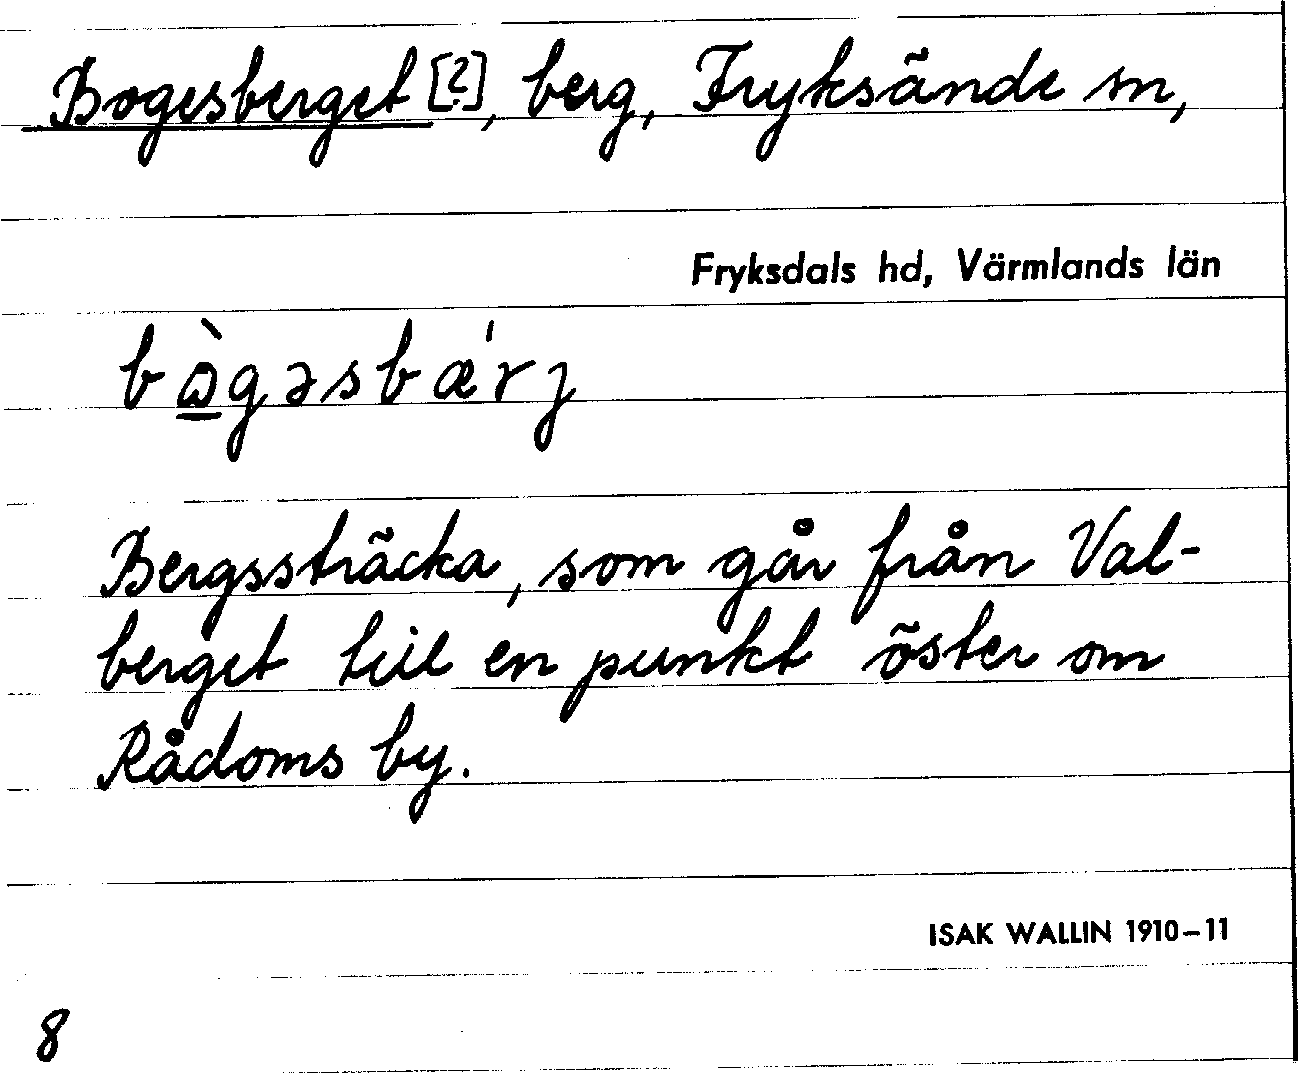 Bogesberget [?], berg, Fryksände sn,
Fryksdals hd, Värmlands län
bɷ̲̀gəsbæ'rj
Bergssträcka, som går från Val-
berget till en punkt öster om
Rådoms by.
ISAK WALLIN 1910–11
8